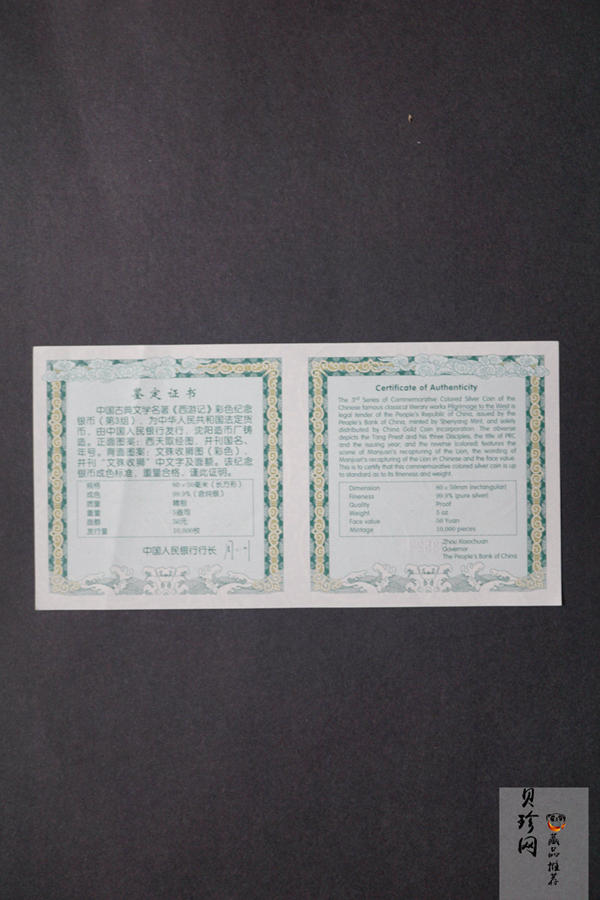 鉴定证书
中国古典文学名著《西游记》彩色纪念
银币（第3组），为中华人民共和国法定货
币，由中国人民银行发行，沈阳造币厂铸
造。正面图案：西天取经图，并刊国名、
年号。背面图案：文殊收狮图（彩色）
并刊“文殊收狮”中文字及面额。该纪念
银币成色标准，重量合格，谨此证明。
规格 80×50毫米（长方形）
成色 99.9%（含纯银）
质量 精制
重量 5盎司
面额 50元
发行量 10,000枚
中国人民银行行长
Certificate of Authenticity
The 3rd Series of Commemorative Colored Silver Coin of the
Chinese famous classical literary works Pilgrimage to the West is
legal tender of the People's Republic of China, issued by the
People's Bank of China, minted by Shenyang Mint, and solely
distributed by China Gold Coin Incorporation. The obverse
depicts the Tang Priest and his three Disciples, the title of PRC
and the issuing year, and the reverse (colored) features the
scene of Manjusri's recapturing of the Lion, the wording of
Manjusri's recapturing of the Lion in Chinese and the face value.
This is to certify that this commemorative colored silver coin is up
to standard as to its fineness and weight.
Dimension 80 x 50mm (rectangular)
Fineness 99.9% (pure silver)
Quality Proof
Weight 5 oz
Face value 50 Yuan
Mintage 10,000 pieces
Zhou Xiaochuan
Governor
The People's Bank of China
贝珍网
藏品推荐